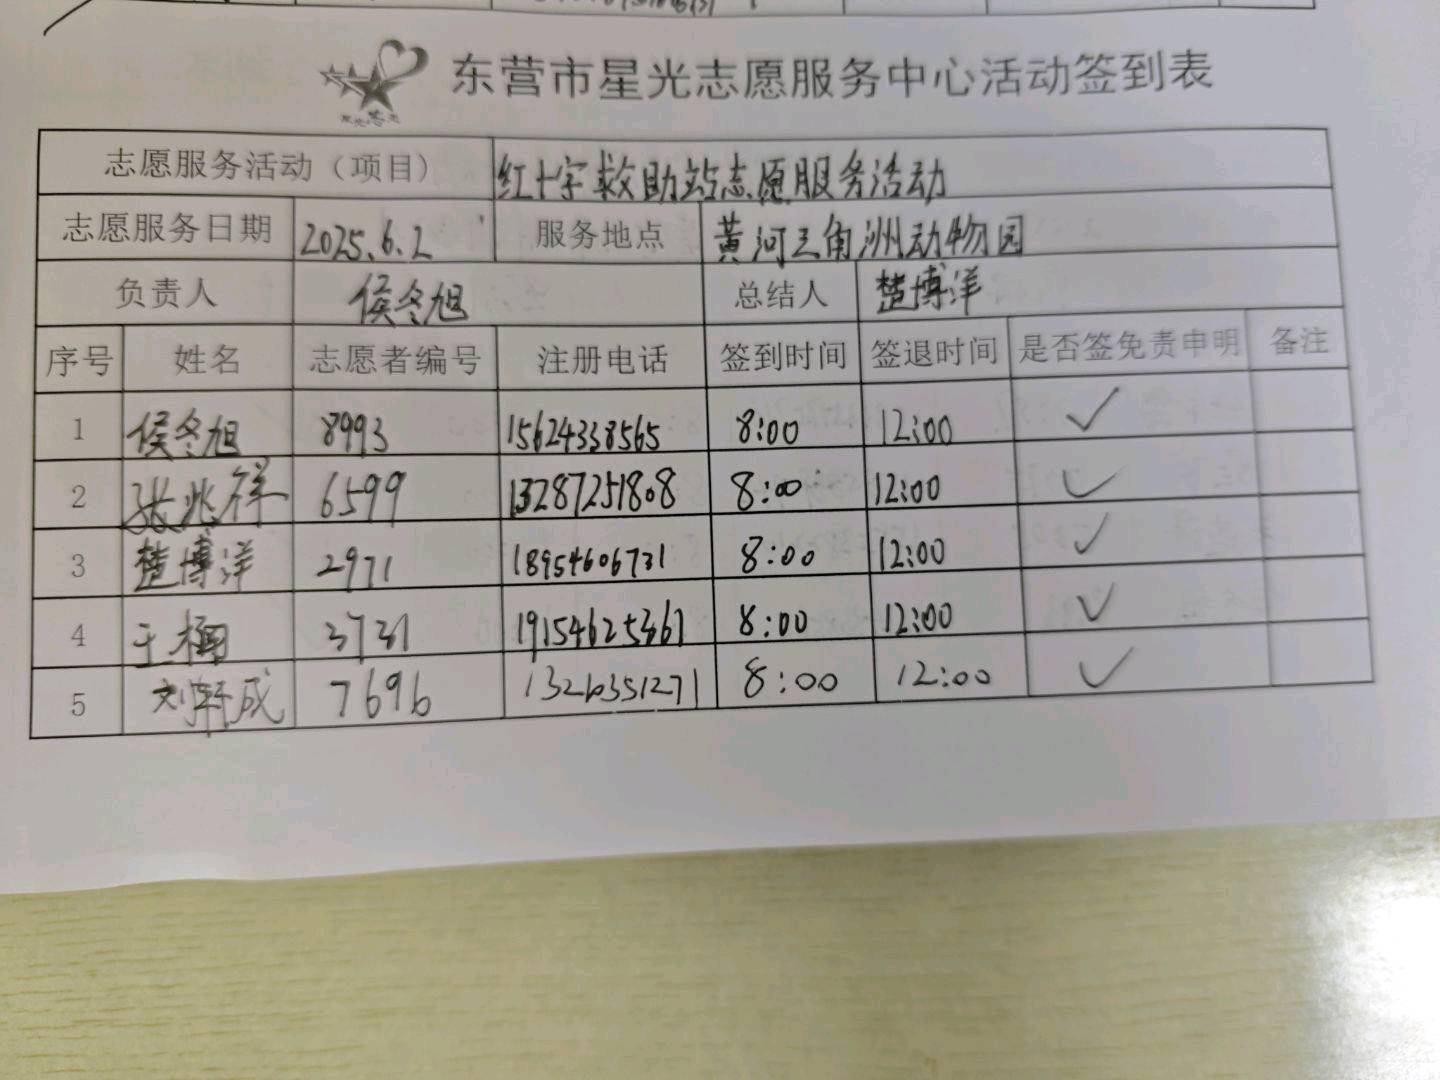 东营市星光志愿服务中心活动签到表
志愿服务活动（项目） 红十字救助站志愿服务活动
志愿服务日期 2025.6.2 服务地点 黄河三角洲动物园
负责人 侯冬旭 总结人 楚博洋
序号 姓名 志愿者编号 注册电话 签到时间 签退时间 是否签免责申明 备注
1 侯冬旭 8993 15624338565 8:00 12:00 ✓
2 张兆祥 6599 13287251808 8:00 12:00 ✓
3 楚博洋 2971 18954606731 8:00 12:00 ✓
4 王楠 3731 8:00 12:00 ✓
5 刘轩成 7696 8:00 12:00 ✓